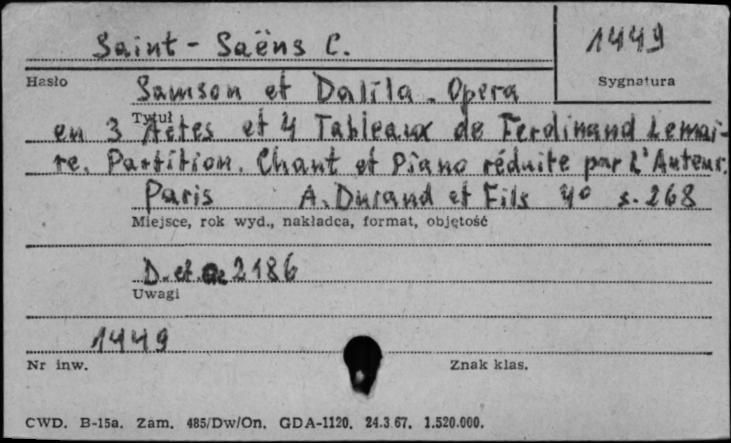 Saint-Saëns C.
1449
Hasło
Sygnatura
Samson et Dalila. Opera
Tytuł
en 3 Actes et 4 Tableaux de Ferdinand Lemai-
re. Partition. Chant et Piano réduite par l'Auteur.
Paris A. Durand et Fils 4° s. 268
Miejsce, rok wyd., nakładca, format, objętość
D. et 2186
Uwagi
1449
Nr inw.
Znak klas.
CWD. B-15a. Zam. 485/Dw/On. GDA-1120. 24.3.67. 1.520.000.